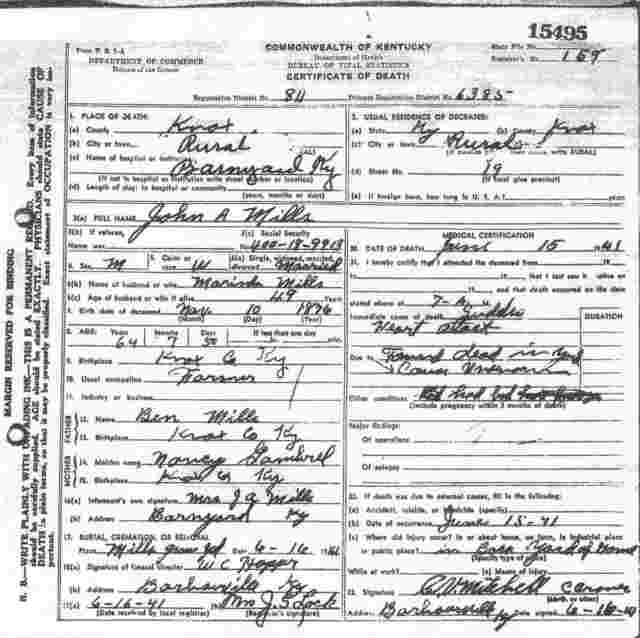 15495
Form V. S. 1-A
DEPARTMENT OF COMMERCE
Bureau of the Census
COMMONWEALTH OF KENTUCKY
Department of Health
BUREAU OF VITAL STATISTICS
CERTIFICATE OF DEATH
State File No.
Registrar's No. 159
Registration District No. 811
Primary Registration District No. 6385
1. PLACE OF DEATH:
(a) County Knox
(b) City or town Rural
(c) Name of hospital or institution: Barnyard Ky
(If not in hospital or institution write street number or location)
(d) Length of stay: In hospital or community
(years, months or days)
2. USUAL RESIDENCE OF DECEASED:
(a) State Ky (b) County Knox
(c) City or town Rural
(d) Street No. 19
(If rural give precinct)
(e) If foreign born, how long in U. S. A.?
3(a) FULL NAME John A Mills
3(b) If veteran, Name war
3(c) Social Security No. 400-18-9918
4. Sex M
5. Color or race W
6(a) Single, widowed, married, divorced Married
6(b) Name of husband or wife Marinda Mills
6(c) Age of husband or wife if alive 49 Years
7. Birth date of deceased Nov. 10 1876
(Month) (Day) (Year)
8. AGE: Years 64 Months 7 Days
If less than one day
9. Birthplace Knox Co Ky
10. Usual occupation Farmer
11. Industry or business
FATHER
12. Name Ben Mills
13. Birthplace Knox Co Ky
MOTHER
14. Maiden name Nancy
15. Birthplace Knox Co Ky
16(a) Informant's own signature Mrs J A Mills
(b) Address Barnyard Ky
17. BURIAL, CREMATION, OR REMOVAL
Place Mills grave yd Date 6-16 1941
18(a) Signature of funeral director W C Hopper
(b) Address Barbourville Ky
19(a) 6-16-41 Mrs J. S Lock
(Date received by local registrar) (Registrar's signature)
MEDICAL CERTIFICATION
20. DATE OF DEATH June 15 1941
21. I hereby certify that I attended the deceased from
to that I last saw h alive on
and that death occurred on the date
stated above at 7-A. M
Immediate cause of death Sudden
Heart attack
DURATION
Due to Found dead in yard
Cause Unknown
Other conditions
(Include pregnancy within 3 months of death)
Major findings:
Of operations
Of autopsy
22. If death was due to external causes, fill in the following:
(a) Accident, suicide, or homicide (specify)
(b) Date of occurrence June 15-41
(c) Where did injury occur? In or about home, on farm, in industrial place
or public place? in Back yard of home
While at work? (e) Means of injury
23. Signature C. V. Mitchell Coroner
(M.D. or other)
Address Barbourville Ky Date signed 6-16-41
MARGIN RESERVED FOR BINDING
N. B.—WRITE PLAINLY WITH UNFADING INK—THIS IS A PERMANENT RECORD. Every item of information
should be carefully supplied. AGE should be stated EXACTLY. PHYSICIANS should state CAUSE OF
DEATH in plain terms, so that it may be properly classified. Exact statement of OCCUPATION is very im-
portant.